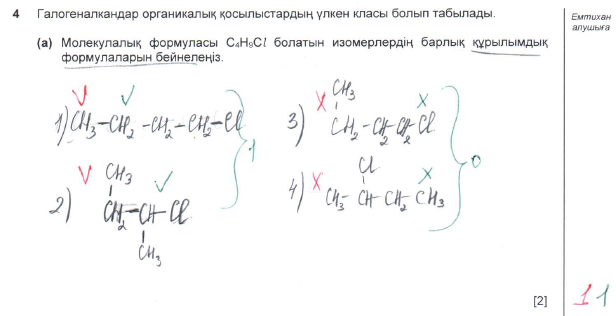 4 Галогеналкандар органикалық қосылыстардың үлкен класы болып табылады.
Емтихан алушыға
(a) Молекулалық формуласы C₄H₉Cl болатын изомерлердің барлық құрылымдық
формулаларын бейнелеңіз.
1) CH₃-CH₂-CH₂-CH₂-Cl
1
2) CH₃
CH₂-CH-Cl
CH₃
3) CH₃
CH₂-CH₂-CH₂Cl
4) Cl
CH₃-CH-CH₂-CH₃
0
[2]
1 1